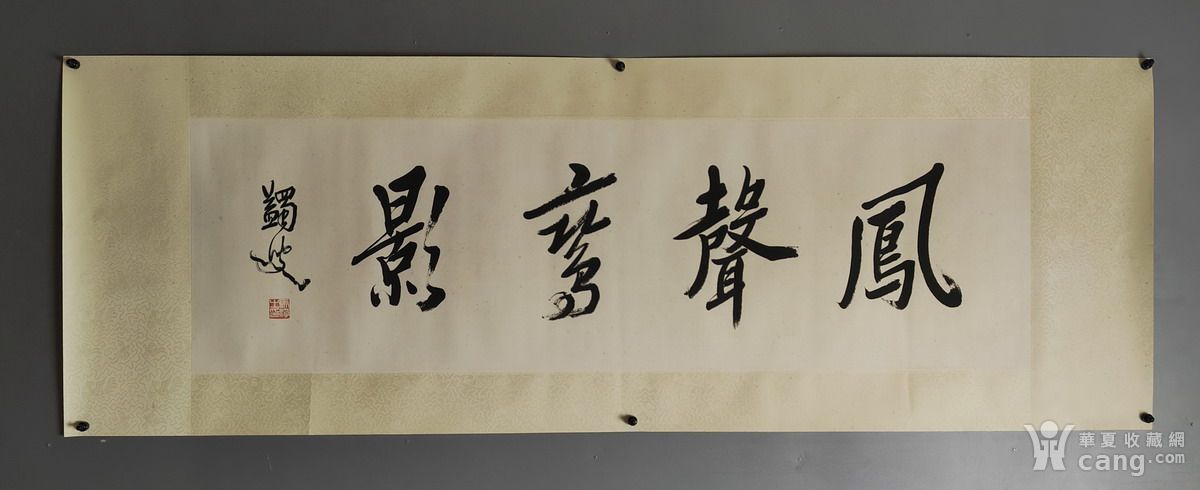 鳳聲鸞影
蠲叟
華夏收藏網
cang.com